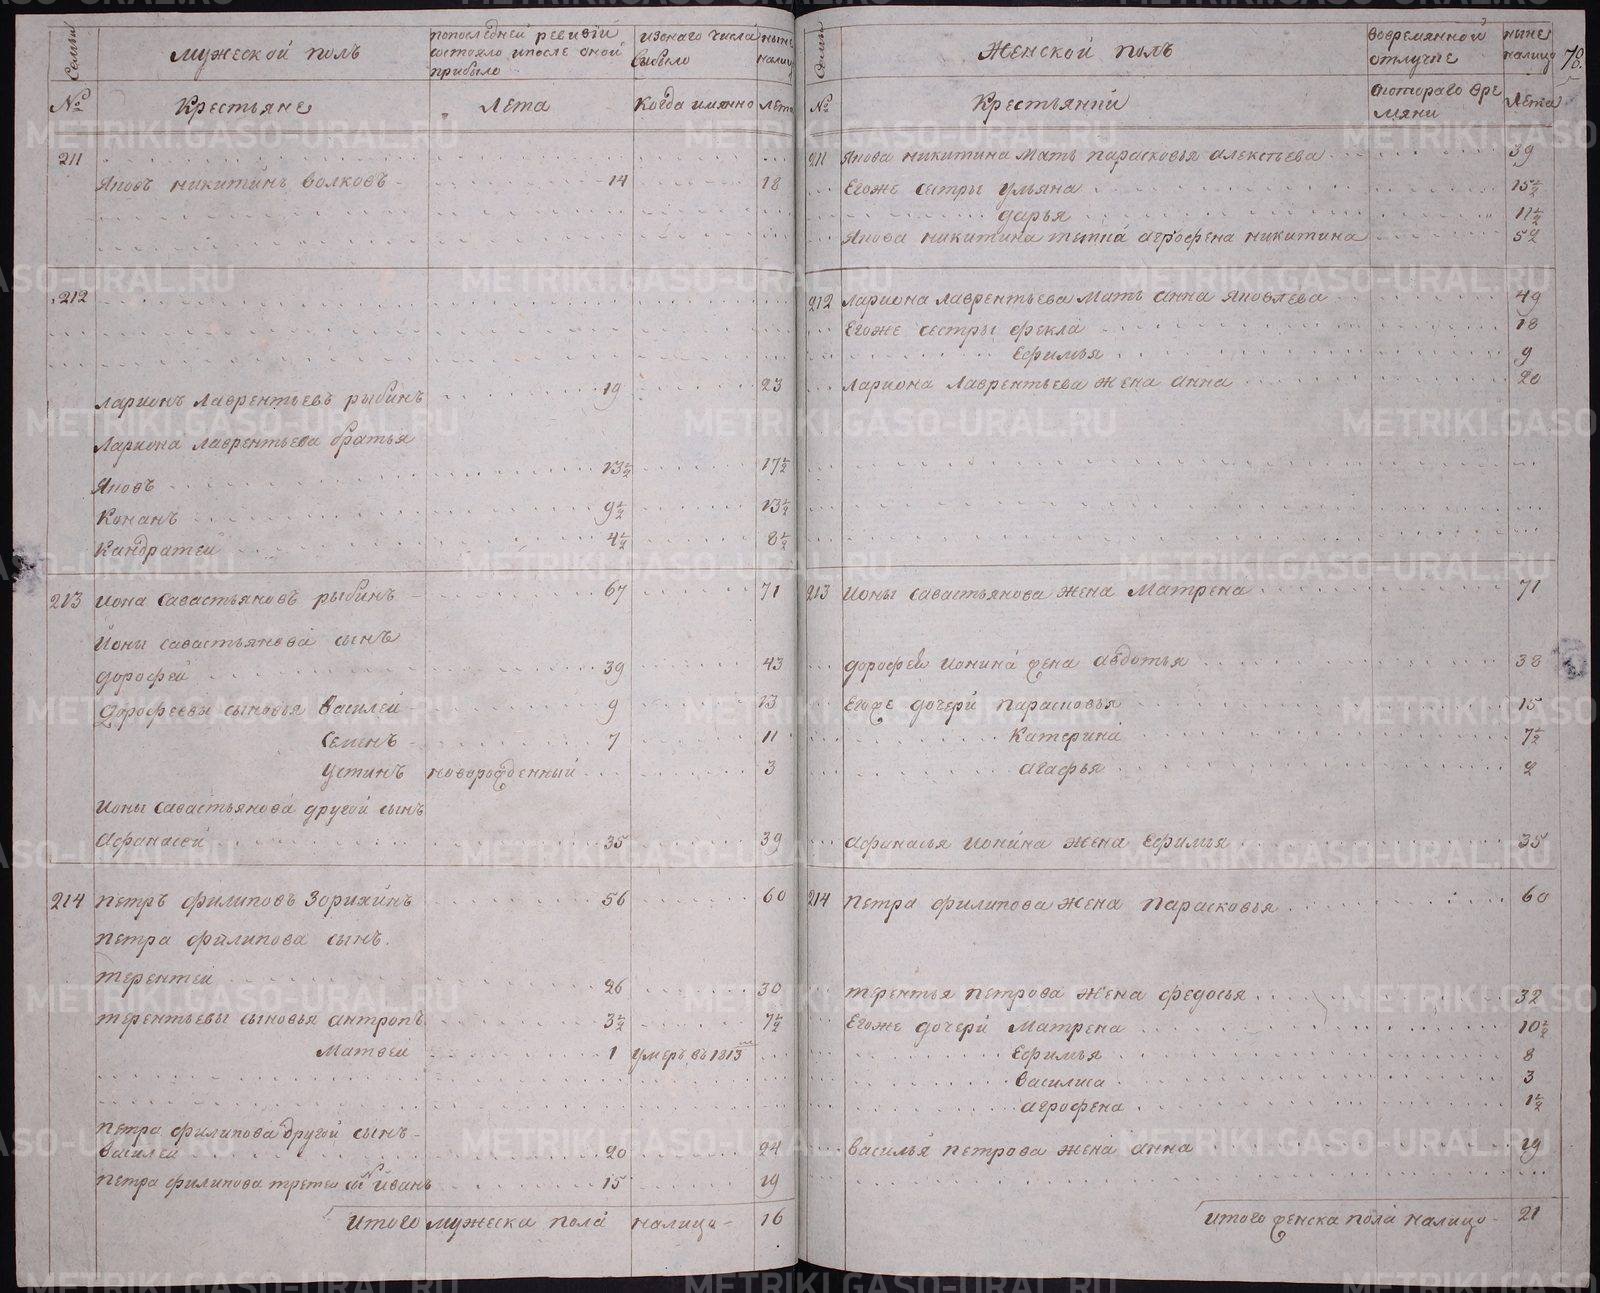 Семьи
Мужеской полъ
попоследней ревизіи состояло ипосле оной прибыло
изонаго числа выбыло
ныне налицо
№
Крестьяне
Лета
Когда имянно
Лета
211
Яковъ никитинъ волковъ 14 18
212
Ларионъ Лаврентьевъ рыбинъ 19 23
Лариона лаврентьева братья
Яковъ 13½ 17½
Конанъ 9½ 13½
Кандратей 4½ 8½
213 Иона савастьяновъ рыбинъ 67 71
Ионы савастьянова сынъ
дорофей 39 43
Дорофеевы сыновья василей 9 13
Семенъ 7 11
Устинъ новорожденный 3
Ионы савастьянова другой сынъ
Афанасей 35 39
214 Петръ филиповъ Зорихинъ 56 60
Петра филипова сынъ
терентей 26 30
терентьевы сыновья антропъ 3½ 7½
Матвей 1 умеръ въ 1813
Петра филипова другой сынъ
василей 20 24
Петра филипова третей сынъ Иванъ 15 19
Итого мужеска пола налицо 16
Семьи
Женской полъ
вовремянной отлучке
ныне налицо
78.
№
Крестьянки
скотораго времяни
Лета
211 Якова никитина Мать парасковья алексеева 39
Егоже сестры ульяна 15½
дарья 11½
Якова никитина тетка агрофена никитина 52
212 Лариона Лаврентьева Мать анна Яковлева 49
Егоже сестры фекла 18
Ефимья 9
Лариона Лаврентьева жена анна 20
213 Ионы савастьянова жена Матрена 71
дорофея Ионина жена авдотья 38
Егоже дочери парасковья 15
Катерина 7½
агафья 2
Афанасья Ионина жена Ефимья 35
214 Петра филипова жена Парасковья 60
терентья петрова жена федосья 32
Егоже дочери Матрена 10½
Ефимья 8
василиса 3
агрофена 1½
василья петрова жена анна 19
Итого женска пола налицо 21
METRIKI.GASO-URAL.RU